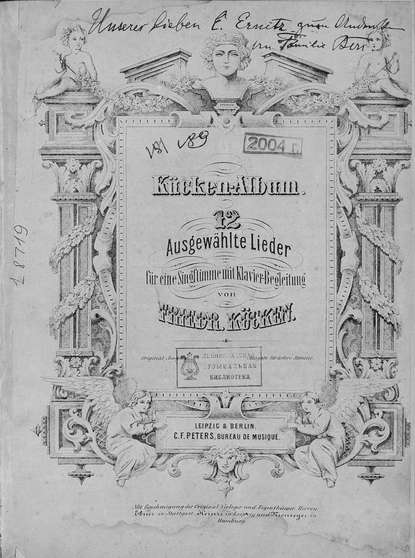 Unserer lieben E. Ernetz
Familie
181 189
2004 г.
Kücken-Album.
12
Ausgewählte Lieder
für eine Singstimme mit Klavier-Begleitung
von
FRIEDR. KÜCKEN.
Original
БИБЛИОТЕКА
18719
LEIPZIG & BERLIN.
C. F. PETERS, BUREAU DE MUSIQUE.
Mit Genehmigung der Original Verleger und Eigenthümer, Herren
in Stuttgart, in Leipzig und in
Hamburg.